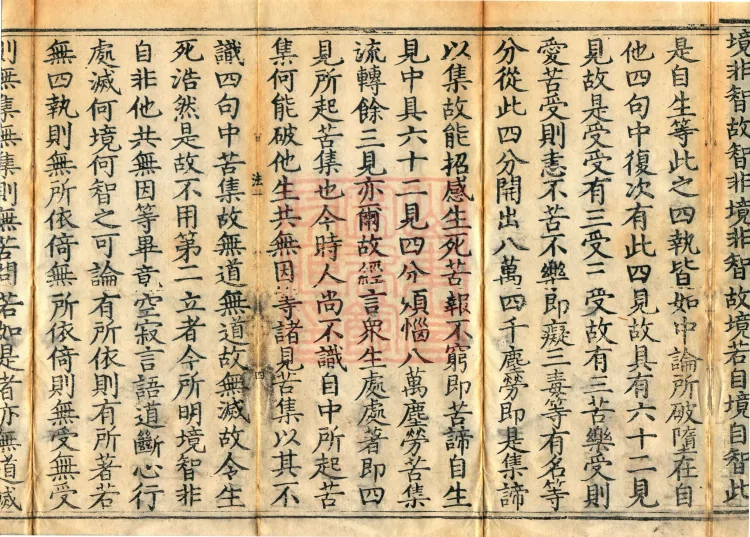 境非智故智非境非智故境若自境自智此
是自生等此之四執皆如中論所破墮在自
他四句中復次有此四見故具有六十二見
見故是受受有三受三受故有三苦樂受則
愛苦受則恚不苦不樂即癡三毒等有名等
分從此四分開出八萬四千塵勞即是集諦
以集故能招感生死苦報不窮即苦諦自生
見中具六十二見四分煩惱八萬塵勞苦集
流轉餘三見亦爾故經言眾生處處著即四
見所起苦集也今時人尚不識自中所起苦
集何能破他生共無因等諸見苦集以其不
法一
四
識四句中苦集故無道無道故無滅故令生
死浩然是故不用第二立者今所明境智非
自非他共無因等畢竟空寂言語道斷心行
處滅何境何智之可論有所依則有所著若
無四執則無所依倚無所依倚則無受無受
則無集無集則無苦問若如是者亦無道滅